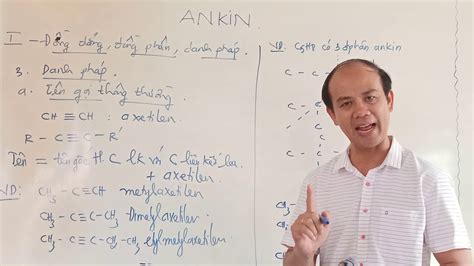 ANKIN
I - Đồng đẳng, đồng phân, danh pháp.
3. Danh pháp.
a. Tên gọi thông thường
CH ≡ CH : axetilen.
R - C ≡ C - R'
Tên = tên gốc H.C lk với C liên kết ba
+ axetilen.
VD: CH3 - C ≡ CH metylaxetilen
CH3 - C ≡ C - CH3 Dimetylaxetilen
CH3 - C ≡ C - CH2 - CH3 etylmetylaxetilen
VD: C5H8 có 3 đphân ankin
C - C -
C - C
C - C
CH3 -